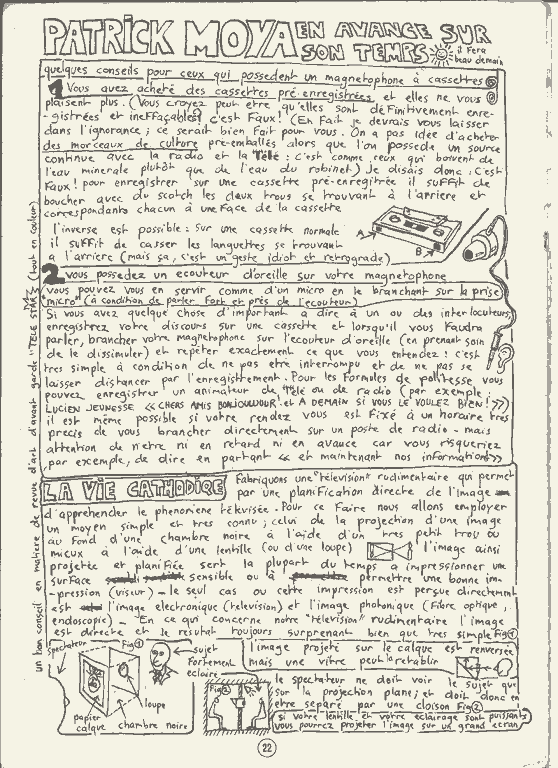 PATRICK MOYA EN AVANCE SUR
SON TEMPS il fera
beau demain
quelques conseils pour ceux qui possedent un magnetophone à cassettes
1 Vous avez acheté des cassettes pré-enregistrées et elles ne vous
plaisent plus. (Vous croyez peut etre qu'elles sont définitivement enre-
-gistrées et ineffaçables) c'est Faux! (En Fait je devrais vous laisser
dans l'ignorance; ce serait bien fait pour vous. On a pas idée d'acheter
des morceaux de culture pré-emballés alors que l'on possede un source
continue avec la radio et la Télé: c'est comme ceux qui boivent de
l'eau minerale plutôt que de l'eau du robinet) Je disais donc: C'est
Faux! pour enregistrer sur une cassette pré-enregitrée il suffit de
boucher avec du scotch les deux trous se trouvant à l'arriere et
correspondants chacun à une face de la cassette
l'inverse est possible: sur une cassette normale
il suffit de casser les languettes se trouvant
a l'arriere (mais ça, c'est un geste idiot et retrograde)
A
B
2 vous possedez un ecouteur d'oreille sur votre magnetophone
vous pouvez vous en servir comme d'un micro en le branchant sur la prise
"micro" (à condition de parler fort et près de l'ecouteur)
Si vous avez quelque chose d'important a dire à un ou des interlocuteurs
enregistrez votre discours sur une cassette et lorsqu'il vous faudra
parler, brancher votre magnetophone sur l'ecouteur d'oreille (en prenant soin
de le dissimuler) et repéter exactement ce que vous entendez: c'est
tres simple à condition de ne pas etre interrompu et de ne pas se
laisser distancer par l'enregistrement. Pour les formules de politesse vous
pouvez enregistrer un animateur de Télé ou de radio (par exemple:
LUCIEN JEUNESSE « CHERS AMIS BONJOUUOUR et A DEMAIN SI VOUS LE VOULEZ BIEN! »)
il est même possible si votre rendez vous est fixé à un horaire très
precis de vous brancher directement sur un poste de radio - mais
attention de n'etre ni en retard ni en avance car vous risqueriez
par exemple, de dire en partant « et maintenant nos informations»
un bon conseil en matière de revue d'art d'avant garde "TELE STAR" (tout en couleur)
LA VIE CATHODIQUE Fabriquons une "télévision" rudimentaire qui permet
par une planification directe de l'image
d'apprehender le phenomene télévisée. Pour ce faire nous allons employer
un moyen simple et tres connu; celui de la projection d'une image
au fond d'une chambre noire à l'aide d'un très petit trou ou
mieux à l'aide d'une lentille (ou d'une loupe) l'image ainsi
projetée et planifiée sert la plupart du temps a impressionner une
surface sensible ou à permettre une bonne im-
-pression (viseur) - le seul cas ou cette impression est perçue directement
est l'image electronique (television) et l'image photonique (Fibre optique,
endoscopie) - En ce qui concerne notre "télévision" rudimentaire l'image
est directe et le resultat toujours surprenant bien que tres simple Fig 1
spectateur
Fig 1
sujet
Fortement
eclairé
loupe
papier
calque
chambre noire
l'image projeté sur le calque est renversée
mais une vitre peut la retablir
Fig 2
le spectateur ne doit voir le sujet que
sur la projection plane; et doit donc en
etre separé par une cloison Fig 2
si votre lentille et votre eclairage sont puissants
vous pourrez projeter l'image sur un grand ecran
22